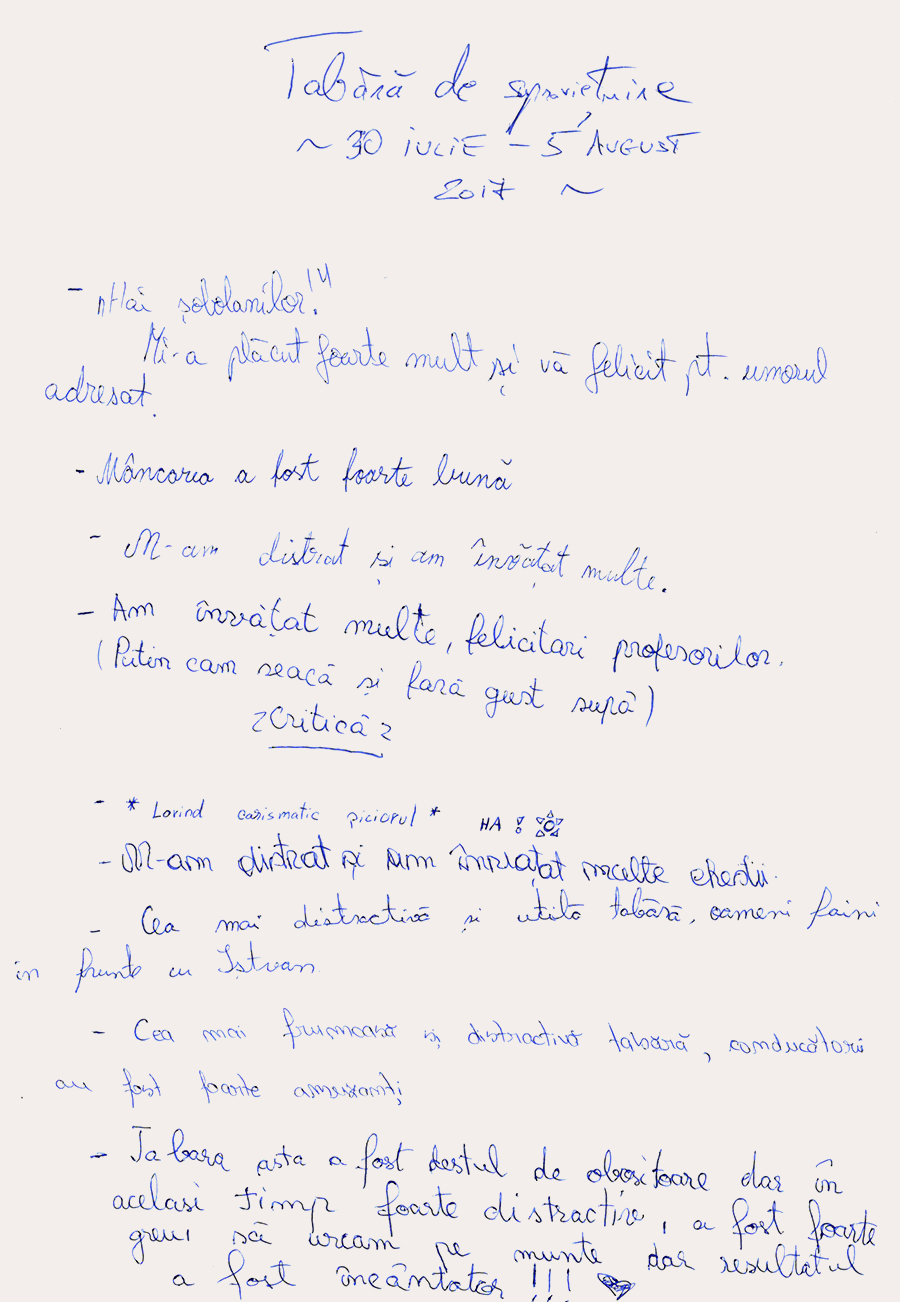 Tabără de supraviețuire
~ 30 IULIE – 5 AUGUST
2017 ~
- "Hai șobolanilor!"
Mi-a plăcut foarte mult și vă felicit pt. umorul
adresat.
- Mâncarea a fost foarte bună
- M-am distrat și am învățat multe.
- Am învățat multe, felicitari profesorilor.
(Putin cam seacă și fară gust supă)
~Critică~
- * Lovind carismatic piciorul * HA!
- M-am distrat și am învatat multe chestii.
- Cea mai distractivă și utilă tabără, oameni faini
in frunte cu Iștvan
- Cea mai frumoasă și distractivă tabără, conducătorii
au fost foarte amuzanți
- Tabara asta a fost destul de obositoare dar în
acelasi timp foarte distractiv, a fost foarte
greu să urcam pe munte dar resultatul
a fost încântator !!!